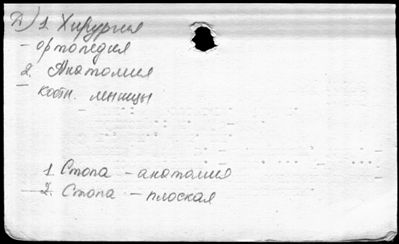 Д) 1. Хирургия
- ортопедия
2. Анатомия
- костн. мышцы
1. Стопа - анатомия
2. Стопа - плоская